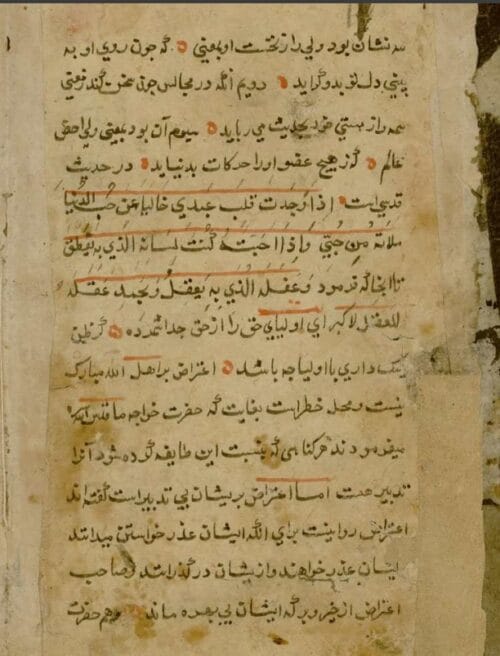 سه نشان بود ولی را از نخست او بمعنی که چون روی او به
بینی دل تو بدو گراید دویم آنکه در مجالس چون سخن کند ز معنی
همه را از هستی خود بحدیث می رباید سیوم آن بود بمعنی ولی اخص
عالم که ز هیچ عضو او را حرکات بد نیاید در حدیث
قدسی است اذا وجدت قلب عبدی خالیا عن حب الدنیا
ملاته من حبی و اذا احبته کنت لسانه الذی به ینطق
تا اینجا که فرمود و عقله الذی به یعقل و یجمد عقله
للعقل الاکبر ای اولیای حق را از حق جدا شمرده گر ظن
نیک داری با اولیا چه باشد اعتراض بر اهل الله مبارک
نیست و محل خطر است بغایت که حضرت خواجه ما قدس سره
میفرمودند هر کناهی که بنسبت این طایفه کرده شود آنرا
تدبیر هست اما اعتراض بر ایشان بی تدبیر است گفته اند
اعتراض روا نیست برای آنکه ایشان عذر خواستن میدانند
ایشان عذر خواهند و از ایشان درگذرانند صاحب
اعتراض از خیر و برکه ایشان بی بهره ماند وهم حضرت